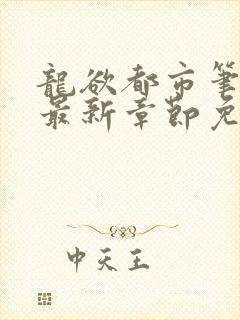 龍欲都市筆
最新章節免
中天王